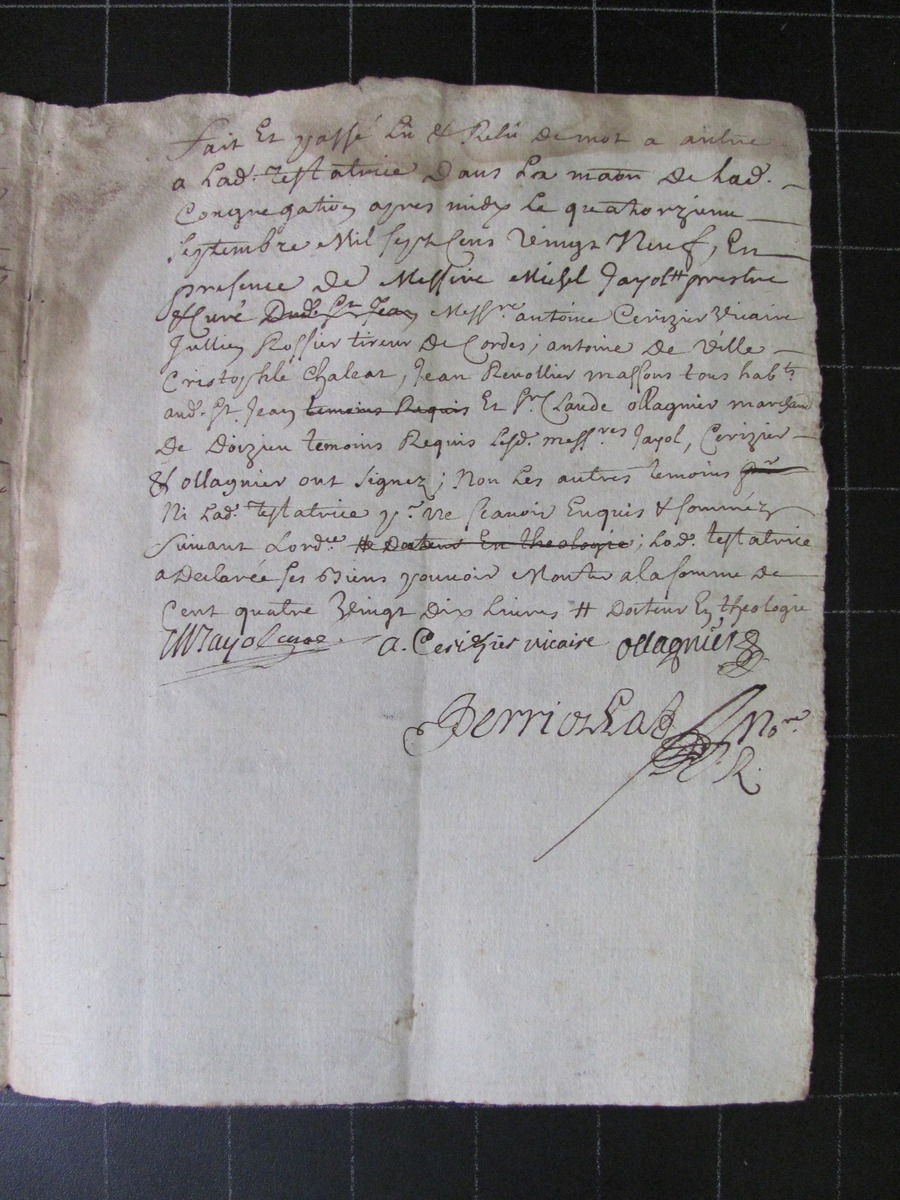 Fait Et passé Lu & Relu de mot a autre
a Lad. Testatrice Dans La maõn De Lad.
Congregation apres midy Le quatorzieme
Septembre Mil sept Cens Vingt Neuf, En
presence De Messire Michel Jayol # prestre
& Curé Dud. St Jean Messre antoine Cerizier Vicaire
Jullien Rossier tireur De Cordes; antoine De Ville
Cristophle Chaleat, Jean Revollier massons tous habts
aud. St. Jean temoins Requis Et Sr. Claude ollagnier marchand
De Doizieu temoins Requis Lesd. messres Jayol, Cerizier
& ollagnier ont signez; Non Les autres temoins
Ni Lad. testatrice pr. Ne scavoir Enquis & somméz
suivant Lordce. # Docteur En theologie; Lad. testatrice
a Declarée ses Biens pouvoir Monter a la somme De
Cent quatre Vingt dix Livres # Docteur En theologie
M Jayol curé a. Cerizier vicaire ollagnier
Perriollat Nore.
R.